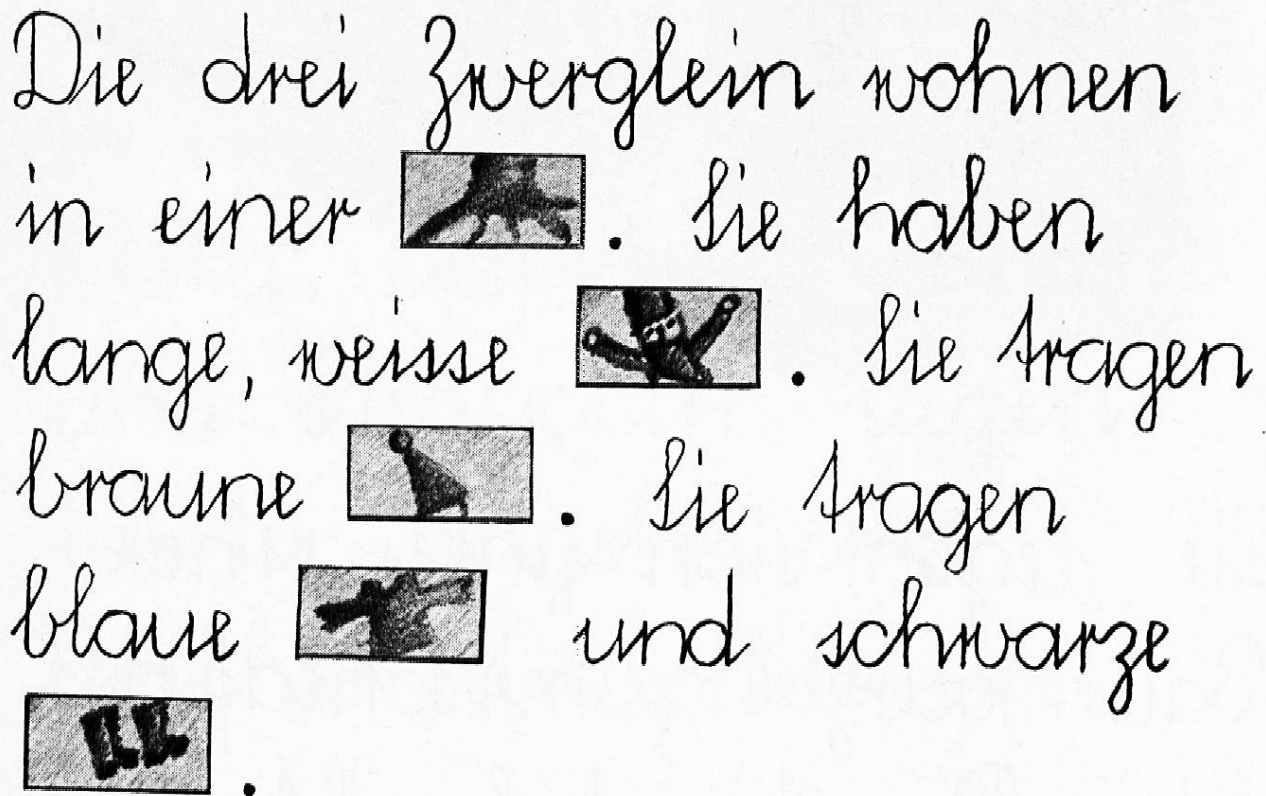 Die drei Zwerglein wohnen
in einer . Sie haben
lange, weisse . Sie tragen
braune . Sie tragen
blaue und schwarze
.